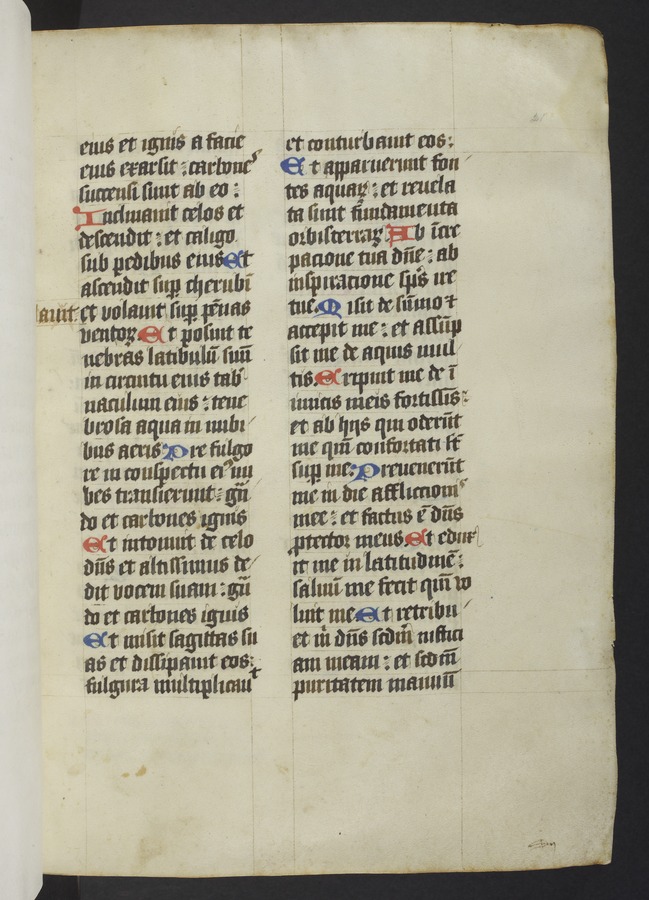 eius et ignis a facie
eius exarsit : carbones
succensi sunt ab eo :
Inclinauit celos et
descendit : et caligo
sub pedibus eius Et
ascendit sup cherubī
auit et volauit sup pēnas
ventoꝝ Et posuit te
nebras latibulū suū
in circuitu eius tab
naculum eius : tene
brosa aqua in nubi
bus aeris Pre fulgo
re in conspectu eiꝰ nu
bes transierunt : grā
do et carbones ignis
Et intonuit de celo
dūs et altissimus de
dit vocem suam : grā
do et carbones ignis
Et misit sagittas su
as et dissipauit eos :
fulgura multiplicauit
et conturbauit eos :
Et apparuerunt fon
tes aquaꝝ : et reuela
ta sunt fūndamenta
orbis terraꝝ Ab īcre
pacione tua dn̄e : ab
inspiracione sps̄ ire
tue. Misit de sūmo ⁊
accepit me : et assūp
sit me de aquis mul
tis. Eripuit me de ī
imicis meis fortissīs :
et ab hijs qui oderūt
me qm̄ confortati st̄
sup me : Preuenerūt
me in die afflictionis
mee : et factus ē dn̄s
ꝓtector meus Et edux
it me in latitudinē :
saluū me fecit qm̄ vo
luit me Et retribu
et m̄ dn̄s scdm̄ iustici
am meam : et scdm̄
puritatem manuū